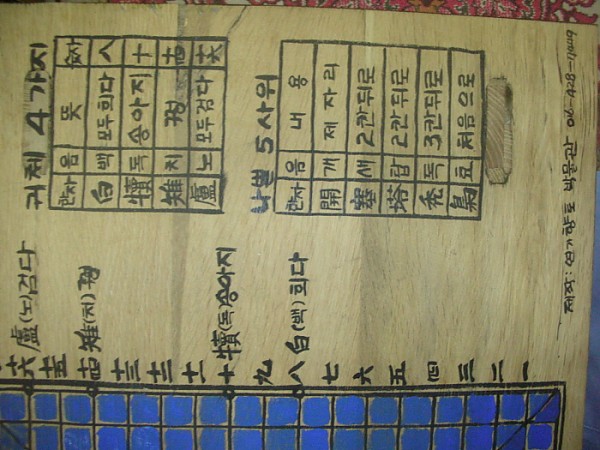 귀체 4 가지
한자 음 뜻 숫자
白 백 모두희다 八
犢 독 송아지 十
雉 치 꿩 十四
盧 노 모두검다 十六
나쁠 5 사위
한자 음 내용
開 개 제자리
塞 새 2칸뒤로
塔 탑 2칸뒤로
禿 독 3칸뒤로
梟 효 처음으로
十六 盧(노)검다
十五
十四 雉(치)꿩
十三
十二
十一
十 犢(독)송아지
九
八 白(백)희다
七
六
五
四
三
二
一
제작: 연기향토 박물관